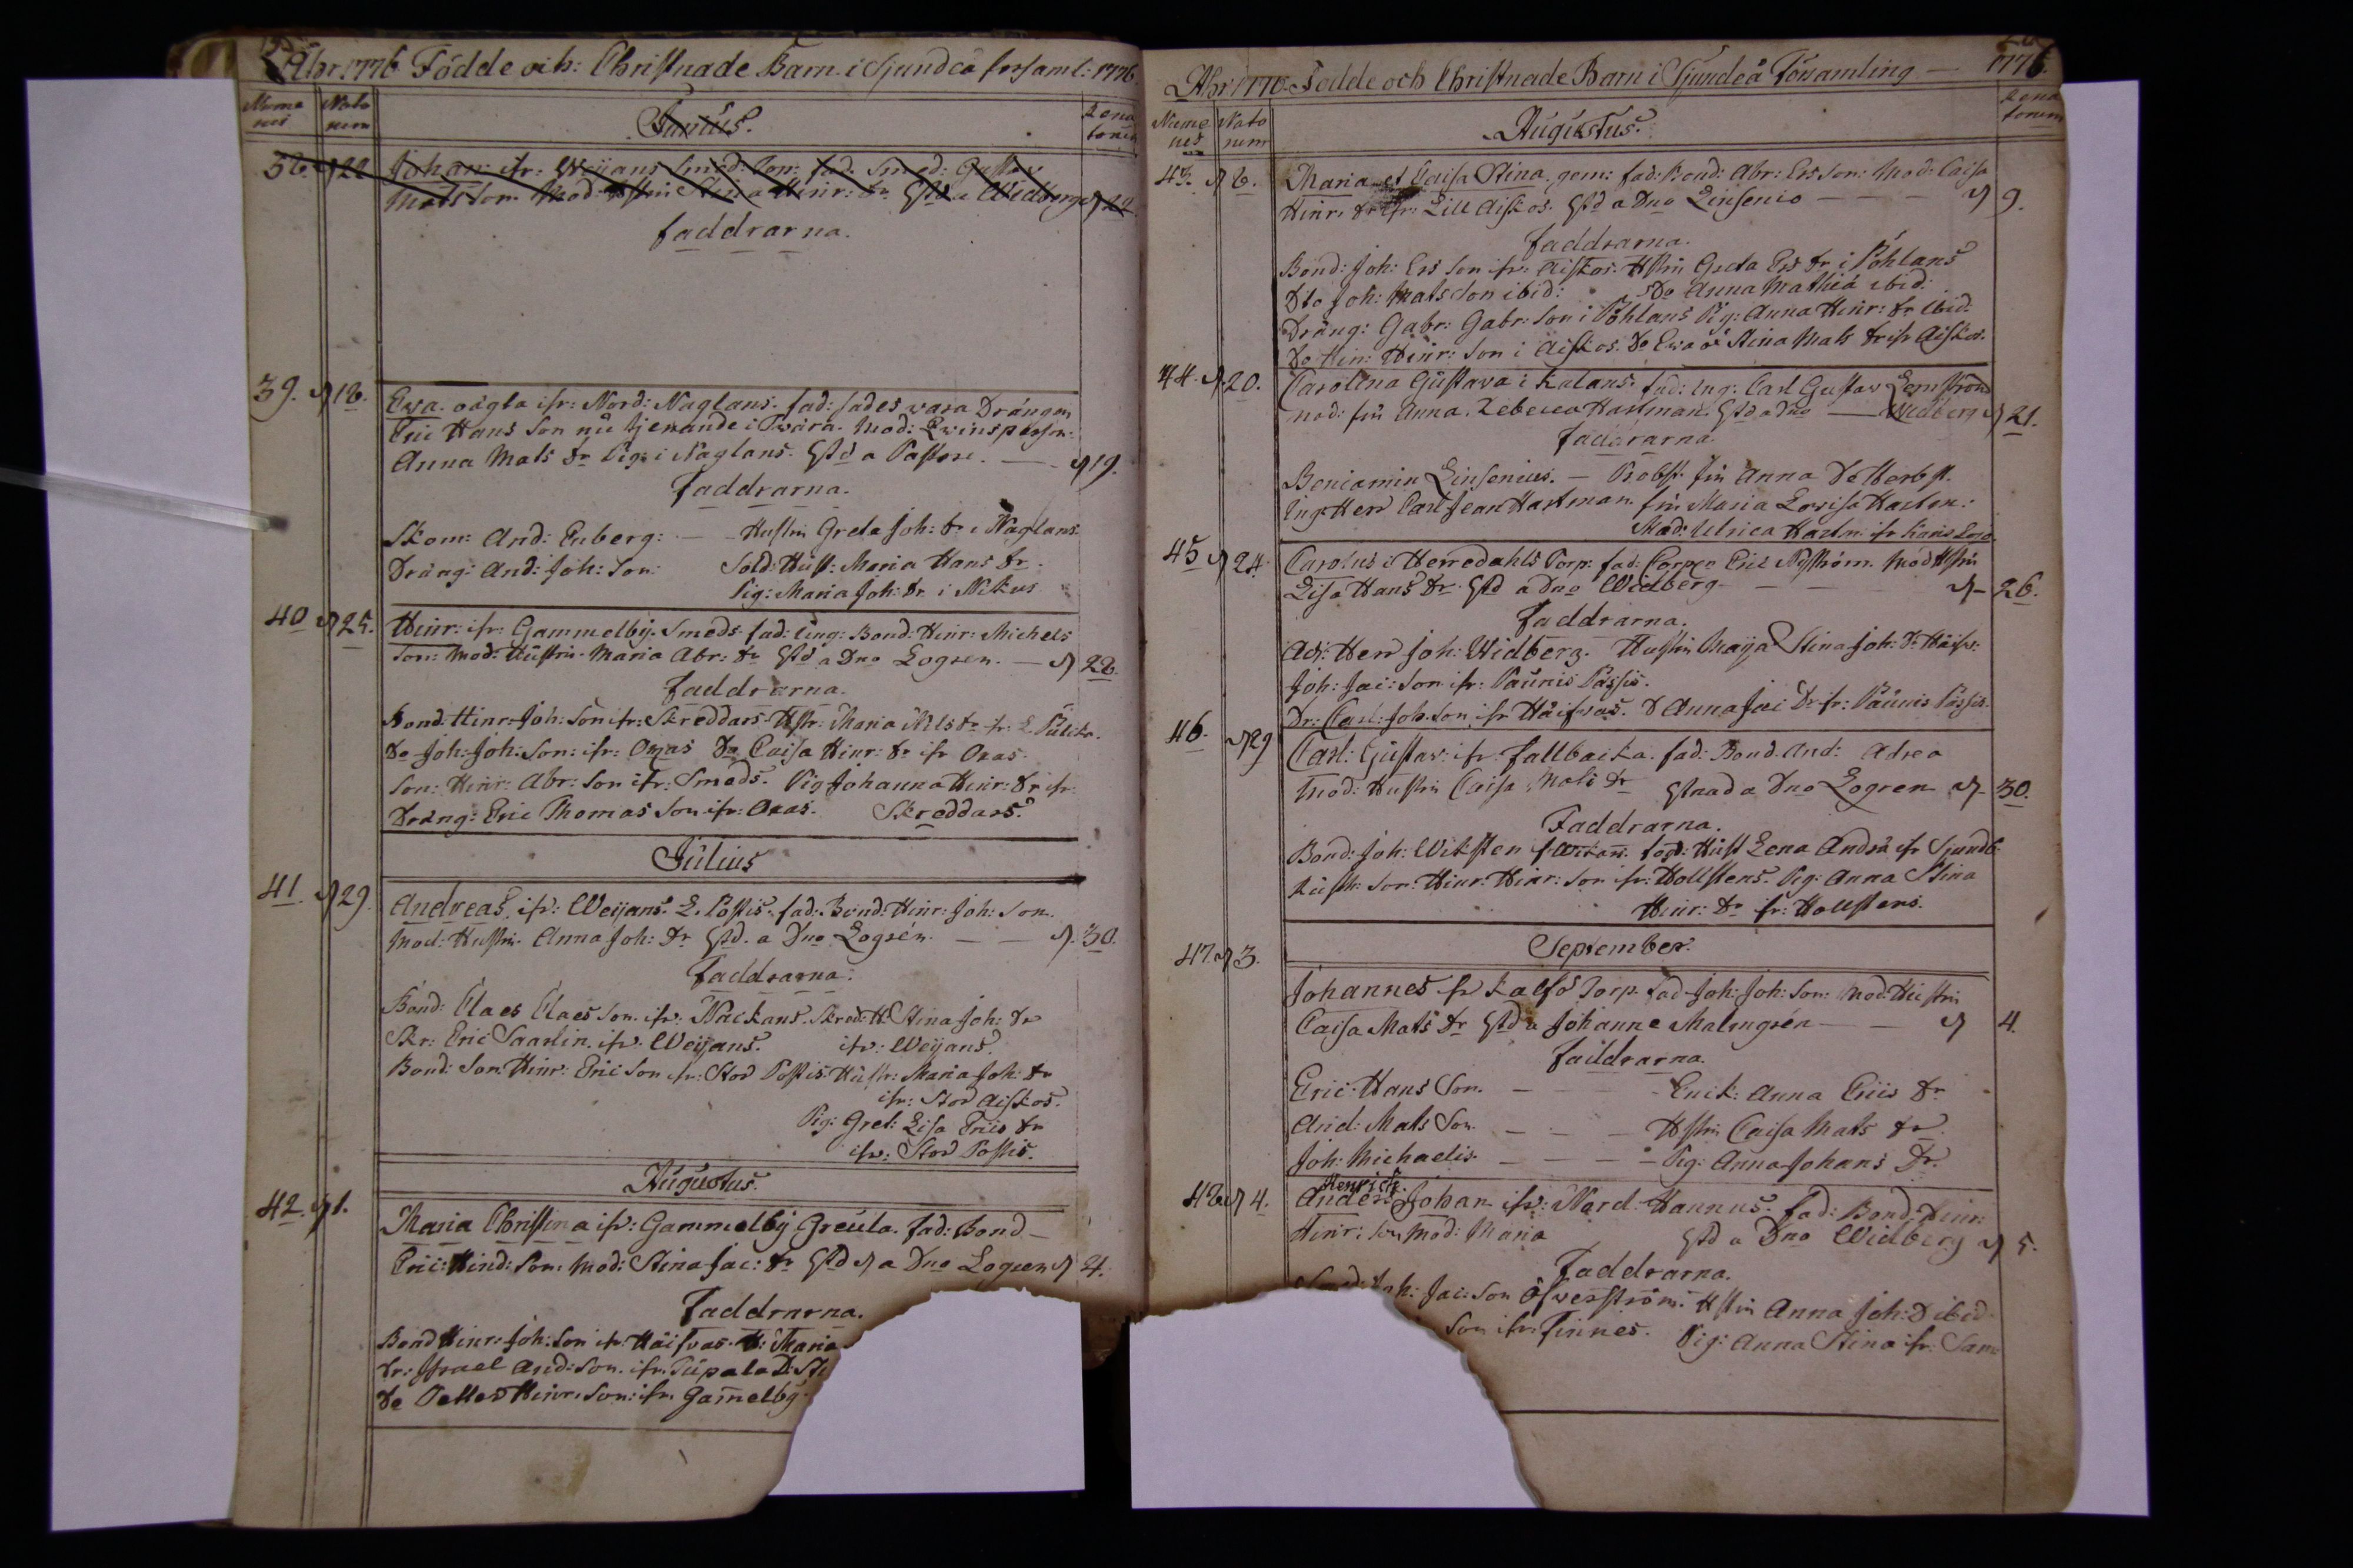 Åhr 1776 Födde och: Christnade Barn i Sjundeå forsaml: 1776
Nume
nus
Nato
rum
Junius.
Rena
torum
38. d 22 Johan: ifr: Weijans Smed: son: fad: Smed: Gustav
Mats son. Mod: Hustru Stina Hinr: dr Gstd a Widberg d 22
faddrarna.
39. d 18. Ewa. oägta ifr: Nord: Naglans. fad: sades vara Drängen
Eric Hans Son nu tjenande i Swära. Mod: Qvinsperson:
Anna Mats dr Piga i Naglans. Gstd a Pastore. — d 19.
Faddrarna.
Skom: And: Enberg: — Hustru Greta Joh: dr i Naglans.
Dräng: And: Joh: Son. Sold: Hust: Maria Hans dr.
Pig: Maria Joh: dr i Nikus
40 d 25. Hinr: ifr: Gammelby. Smeds. fad: Ung: Bond: Hinr: Michels
son: Mod: Hustru Maria Abr: dr Gstd a Dno Logren. — d 28.
Faddrarna.
Bond: Hinr: Joh: Son ifr: Skreddars Hstr: Maria Nils dr fr: L.
do Joh: Joh: Son: ifr: Oxas do Caisa Hinr: dr ifr Oxas.
Son: Hinr: Abr: son ifr: Smeds. Pig Johanna Hinr: dr ifr:
Dräng: Eric Thomas Son ifr: Oxas. Skreddars.
Julius
41. d 29. Andreas, ifr: Weijans. L. Postis. fad: Bond: Hinr: Joh: Son.
Mod: Hustru. Anna Joh: dr Gstd. a Dno Logrén. — — d. 30.
Faddrarna.
Bond: Claes Claes Son. ifr: Nackans. Skred: H. Stina Joh: dr
Skr: Eric Saarlin. ifr: Weijans. ifr: Weijans.
Bond: Son. Hinr: Eric Son ifr: Stor Postis. Hustr: Maria Joh: dr
ifr: Stor Aiskos.
Pig: Gret: Lisa Eriis dr
ifr: Stor Postis.
Augustus.
42. d 1. Maria Christina ifr: Gammelby Greula. fad: Bond —
Eric: Hind: Son. Mod: Stina Jac: dr Gstd d a Dno Logren d 4.
Faddrarna.
Bond Hinr: Joh: Son ifr: Häifvas. H: Maria
dr: Israel And: Son. ifr. Tupala D: St
do Petter Hinr: Son: ifr. Gamelby
Åhr 1776. Födde och Christnade Barn i Sjundeå Församling — 1776.
Nume
nus
Nato
rum
Augustus.
Rena
torum
43. d 6. Maria et Caisa Stina. gem: fad: Bond: Abr: Ers son: Mod: Caisa
Hinr: dr ifr: Lill Aiskos. Gstd a Dno Linsenio — — — d 9.
Faddrarna.
Bond: Joh: Ers Son ifr: Aiskos. Hstru Greta Ers dr i Pöhlans
Dto Joh: Mats Son ibid: Do Anna Mathiä ibid:
Dräng: Gabr: Gabr: Son i Pöhlans Pig: Anna Hinr: dr ibid:
do Hin: Hinr: Son i Aiskos. do Ewa Stina Mats dr ifr Aiskos.
44. d. 20. Carolina Gustava i Kalans. fad: Ing: Carl Gustav Lernström
mod: fru Anna Rebecca Hartman. Gstd a Dno — Widberg d 21.
Faddrarna.
Beniamin Linsenius. — Probst. fru Anna De Herbst.
Ing: Herr Carl Jean Hartman. fru Maria Lovisa Hartm:
Mad: Ulrica Hartm: ifr Karis Lojo
45 d 24. Carolus i Herredahls Torp. fad: Corper Eric Nyström. Mod Hstru
Lisa Hans dr. Gstd a Dno Widberg — — d — 26.
Faddrarna.
Adj: Herr Joh: Widberg. Hustru Maija Stina Joh: dr Häifv:
Joh: Jac: Son ifr: Paunis Passis.
Dr: Carl: Joh. Son ifr Häifvas. D Anna Jac Dr fr: Paunis Passis.
46. d 29 Carl: Gustav: ifr Fallbacka. fad: Bond. And: Adrea
Mod: Hustru Caisa Mats dr Gstaad a Dno Logren d — 30.
Faddrarna.
Bond: Joh: Wiksten Hust Lena Andrä ifr Sjundb:
Rusth: Son: Hinr: Hinr: Son ifr: Hollstens. Pig: Anna Stina
Hinr: dr fr: Hollstens.
September.
47. d 3. Johannes fr Kalfs Torp. fad: Joh: Joh: Son: Mod: Hustru
Caisa Mats dr Gstd a Johanne Malmgrén — — d 4.
Faddrarna.
Eric Hans Son. — — Enk: Anna Eriis dr
And: Mats Son — — — Hstru Caisa Mats dr
Joh: Michaelis — — — Pig: Anna Johans Dr.
Henrich
48 d 4. Anders Johan ifr: Nord: Hannus. fad: Bond: Hinr:
Hinr: Son Mod: Maria Gstd a Dno Widberg d 5.
Faddrarna.
Joh: Jac: Son Ölverström. Hstru Anna Joh: D ibid
Son ifr: Finnes. Pig: Anna Stina ifr: Sam